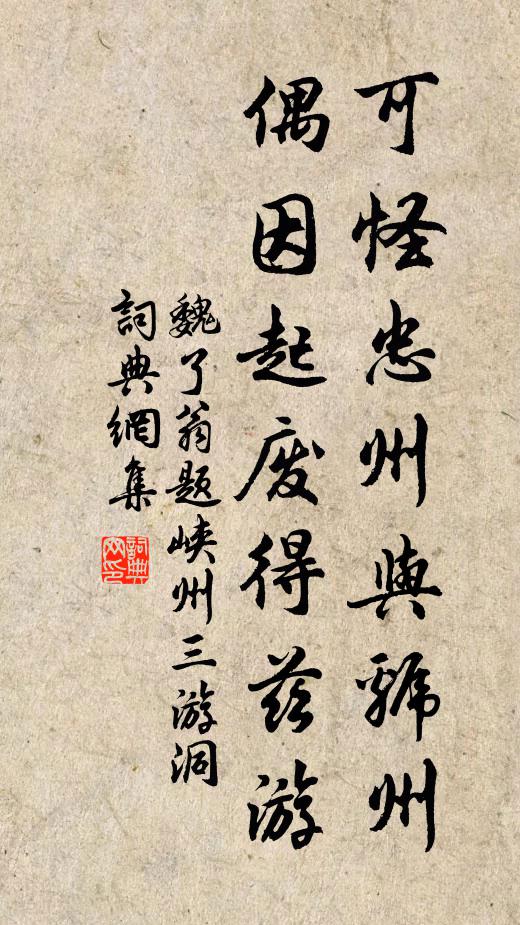 可怪忠州與虢州
偶因起废得兹游
魏了翁题峡州三游洞
詞典網集
詞典网印